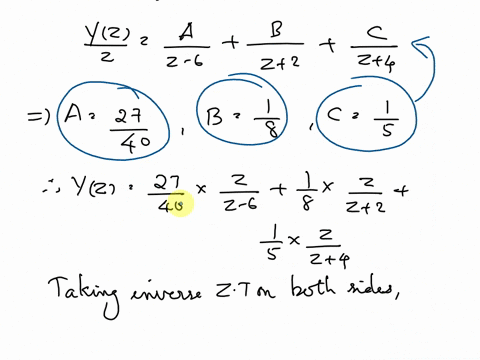 Y(z)/z = A/(z-6) + B/(z+2) + C/(z+4)
=) A = 27/40 , B = 1/8 , C = 1/5
∴ Y(z) = 27/40 × z/(z-6) + 1/8 × z/(z+2) +
1/5 × z/(z+4)
Taking inverse Z.T on both sides,